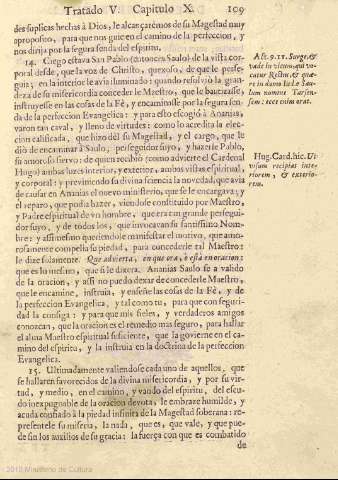 Tratado V. Capitulo X. 109
des suplicas hechas à Dios, le alcançarèmos de su Magestad muy
aproposito, para que nos guie en el camino de la perfeccion, y
nos dirija por la segura senda del espiritu.
14. Ciego estava San Pablo (entonces Saulo) de la vista cor-
poral desde, que la voz de Christo, quexoso, de que le perse-
guia; en la interior le avia iluminado: quando resolviò la gran-
deza de su misericordia conceder le Maestro, que le bautizasse,
instruyesse en las cosas de la Fè, y encaminasse por la segura sen-
da de la perfeccion Evangelica: y para esto escogiò à Ananias,
varon tan caval, y lleno de virtudes: como lo acredita la elec-
cion calificada, que hizo del su Magestad, y el cargo, que le
diò de encaminar à Saulo, perseguidor suyo, y hazerle Pablo,
su amoroso siervo: de quien recibiò (como advierte el Cardenal
Hugo) ambas luzes interior, y exterior, ambas vistas espiritual,
y corporal: y previniendo su divina sciencia la novedad, que avia
de causar en Ananias el nuevo ministerio, que se le encargava, y
el reparo, que podia hazer, viendose constituido por Maestro,
y Padre espiritual de vn hombre, que era tan grande persegui-
dor suyo, y de todos los, que invocavan su santissimo Nom-
bre: y assimesmo queriendole manifestar el motivo, que amo-
rosamente compelia su piedad, para concederle tal Maestro:
le dize solamente. Que advierta, en que ora, è està en oracion:
que es lo mesmo, que si le dixera. Ananias Saulo se a valido
de la oracion, y assi no puedo dexar de concederle Maestro,
que le encamine, instruia, y enseñe las cosas de la Fè, y de
la perfeccion Evangelica, y tal como tu, para que con seguri-
dad la consiga: y para que mis fieles, y verdaderos amigos
conozcan, que la oracion es el remedio mas seguro, para hallar
el alma Maestro espiritual suficiente, que la govierne en el ca-
mino del espiritu, y la instruia en la doctrina de la perfeccion
Evangelica.
15. Ultimadamente valiendose cada uno de aquellos, que
se hallaren favorecidos de la divina misericordia, y por su vir-
tud, y medio, en el camino, y vando del espiritu, del escu-
do inexpugnable de la oracion devota, le embraze humilde, y
acuda confiado à la piedad infinita de la Magestad soberana: re-
presentele su miseria, la nada, que es, que vale, y que pue-
de sin los auxilios de su gracia: la fuerça con que es combatido
de
Act. 9. 11. Surge, &
vade in vicum, qui vo-
catur Rectus, & quæ-
re in domo Iudæ Sau-
lum nomine Tarsen-
sem: ecce enim orat.
Hug. Card. hic. Ut
visum recipiat inte-
riorem, & exterio-
rem.
© 2010 Ministerio de Cultura